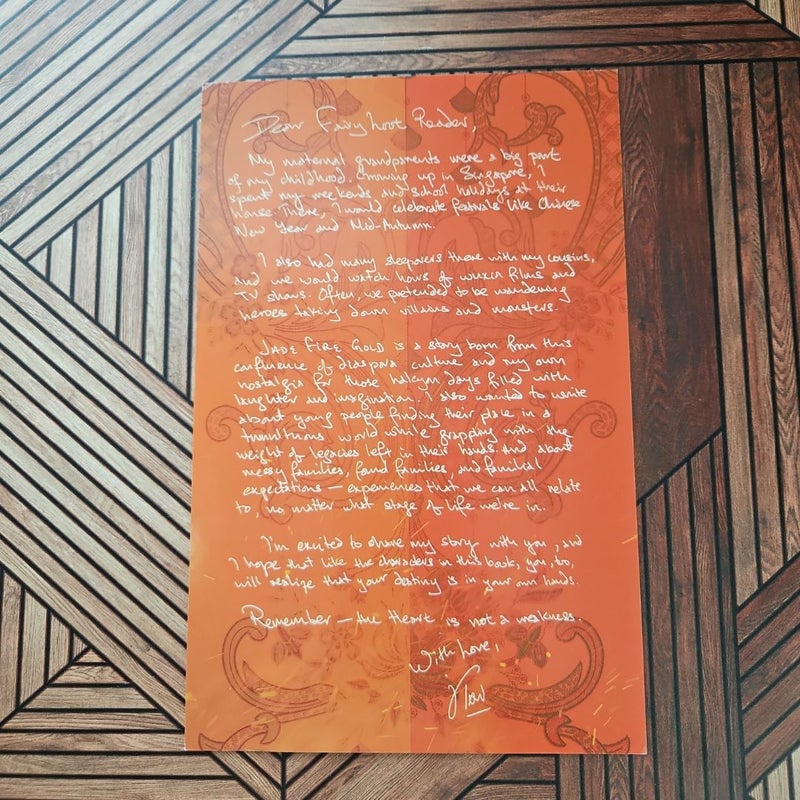 Dear FairyLoot Reader,
My maternal grandparents were a big part
of my childhood. Growing up in Singapore, I
spent my weekends and school holidays at their
house. There, I would celebrate festivals like Chinese
New Year and Mid-Autumn.
I also had many sleepovers there with my cousins,
and we would watch hours of wuxia films and
TV shows. Often, we pretended to be wandering
heroes taking down villains and monsters.
JADE FIRE GOLD is a story born from this
confluence of diaspora culture and my own
nostalgia for those halcyon days filled with
laughter and imagination. I also wanted to write
about young people finding their place in a
tumultuous world while grappling with the
weight of legacies left in their hands. And about
messy families, found families, and familial
expectations — experiences that we can all relate
to, no matter what stage of life we're in.
I'm excited to share my story with you, and
I hope that like the characters in this book, you, too,
will realize that your destiny is in your own hands.
Remember — the heart is not a weakness.
With Love,